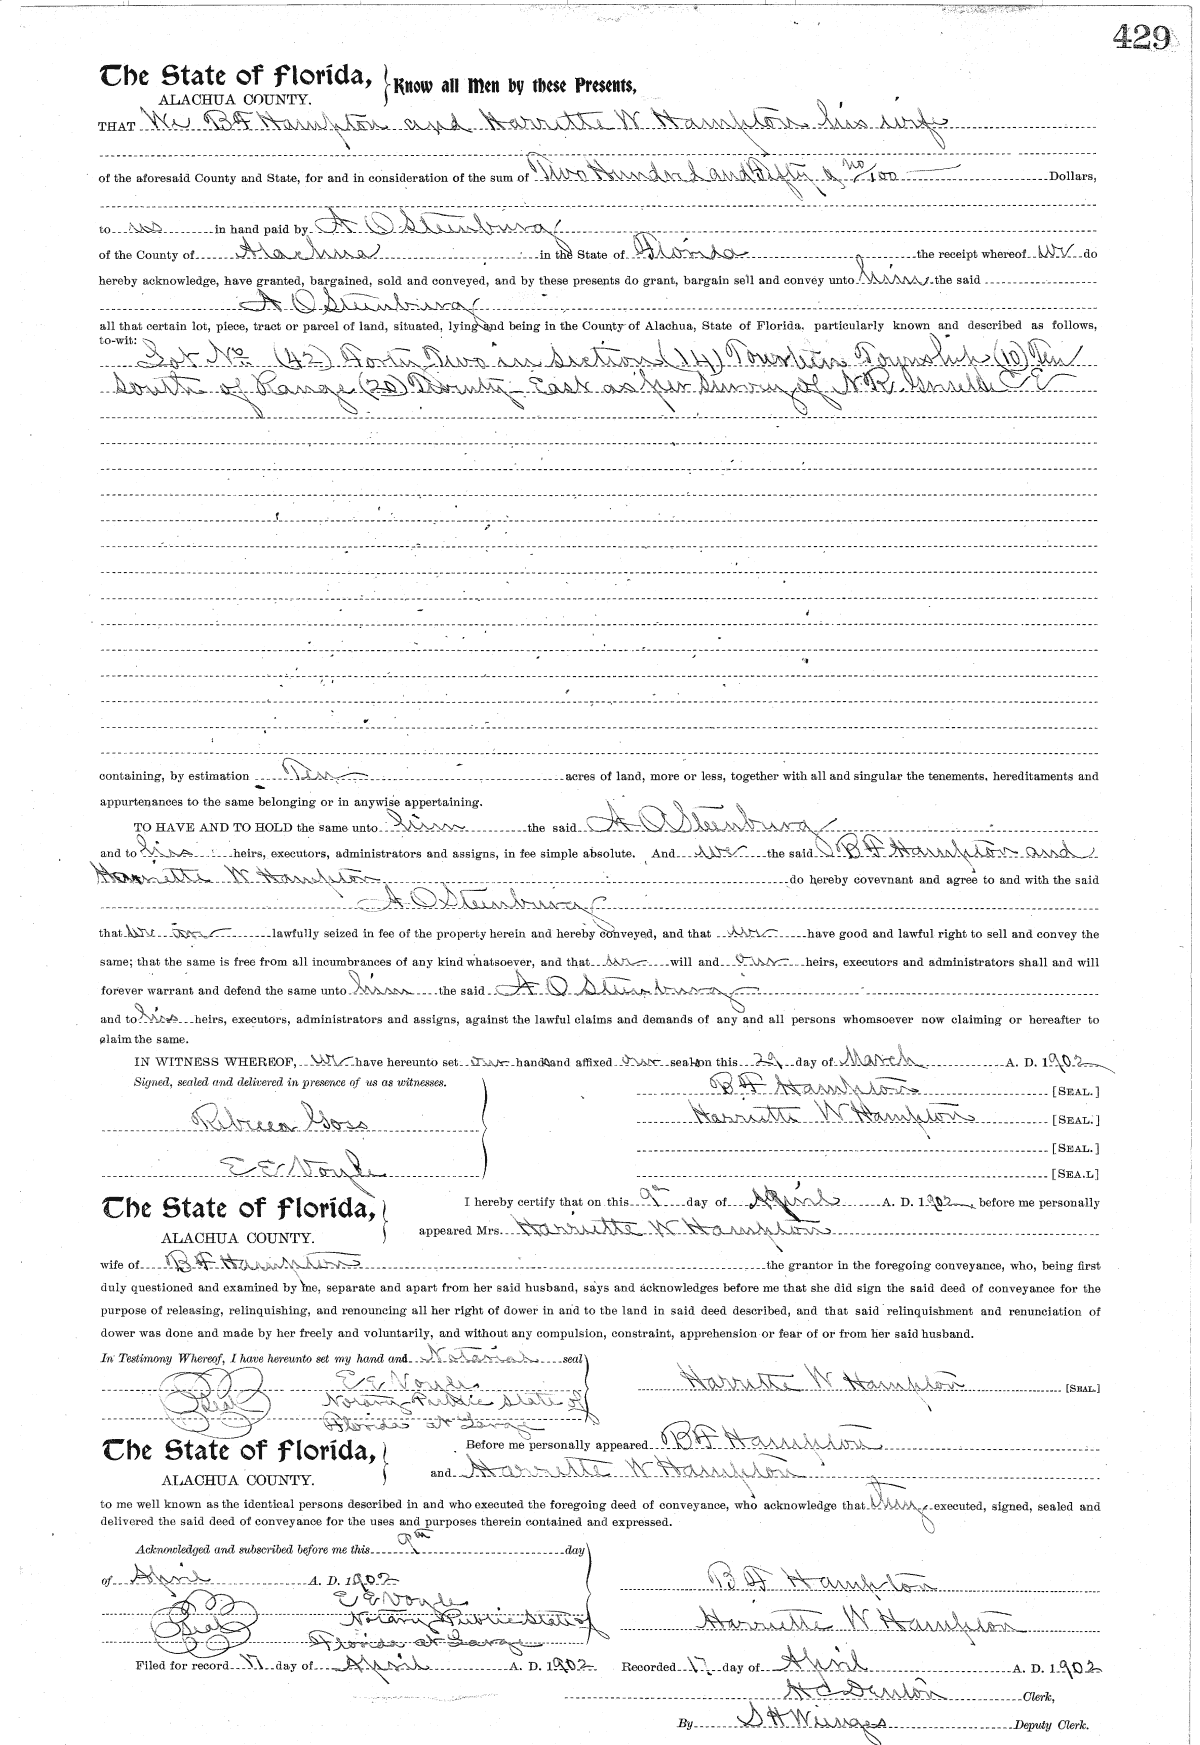 429
The State of Florida, Know all Men by these Presents,
ALACHUA COUNTY.
THAT We B F Hampton and Harriette W Hampton his wife
of the aforesaid County and State, for and in consideration of the sum of Two Hundred and Fifty & no/100 Dollars,
to us in hand paid by A O Steenburg
of the County of Alachua in the State of Florida the receipt whereof we do
hereby acknowledge, have granted, bargained, sold and conveyed, and by these presents do grant, bargain sell and convey unto him the said
A O Steenburg
all that certain lot, piece, tract or parcel of land, situated, lying and being in the County of Alachua, State of Florida, particularly known and described as follows,
to-wit:
Lot No (42) Forty Two in Section (14) Fourteen Township (10) Ten
South of Range (20) Twenty East as per Survey of N R C E
containing, by estimation Ten acres of land, more or less, together with all and singular the tenements, hereditaments and
appurtenances to the same belonging or in anywise appertaining.
TO HAVE AND TO HOLD the same unto him the said A O Steenburg
and to his heirs, executors, administrators and assigns, in fee simple absolute. And we the said B F Hampton and
Harriette W Hampton do hereby covevnant and agree to and with the said
A O Steenburg
that we are lawfully seized in fee of the property herein and hereby conveyed, and that we have good and lawful right to sell and convey the
same; that the same is free from all incumbrances of any kind whatsoever, and that we will and our heirs, executors and administrators shall and will
forever warrant and defend the same unto him the said A O Steenburg
and to his heirs, executors, administrators and assigns, against the lawful claims and demands of any and all persons whomsoever now claiming or hereafter to
claim the same.
IN WITNESS WHEREOF, we have hereunto set our hands and affixed our seals on this 29 day of March A. D. 1902
Signed, sealed and delivered in presence of us as witnesses.
B F Hampton [SEAL.]
Rebecca Goss Harriette W Hampton [SEAL.]
[SEAL.]
E E Voyle [SEA.L]
The State of Florida, I hereby certify that on this 9th day of April A. D. 1902, before me personally
ALACHUA COUNTY. appeared Mrs. Harriette W Hampton
wife of B F Hampton the grantor in the foregoing conveyance, who, being first
duly questioned and examined by me, separate and apart from her said husband, says and acknowledges before me that she did sign the said deed of conveyance for the
purpose of releasing, relinquishing, and renouncing all her right of dower in and to the land in said deed described, and that said relinquishment and renunciation of
dower was done and made by her freely and voluntarily, and without any compulsion, constraint, apprehension or fear of or from her said husband.
In Testimony Whereof, I have hereunto set my hand and Notarial seal
E E Voyle Harriette W Hampton [SEAL.]
Seal Notary Public State of
Florida at Large
The State of Florida, Before me personally appeared B F Hampton
ALACHUA COUNTY. and Harriette W Hampton
to me well known as the identical persons described in and who executed the foregoing deed of conveyance, who acknowledge that they executed, signed, sealed and
delivered the said deed of conveyance for the uses and purposes therein contained and expressed.
Acknowledged and subscribed before me this 9th day
of April A. D. 1902 B F Hampton
E E Voyle
Seal Notary Public State of Harriette W Hampton
Florida at Large
Filed for record 17 day of April A. D. 1902 Recorded 17 day of April A. D. 1902
H C Denton Clerk,
By S H Wienges Deputy Clerk.